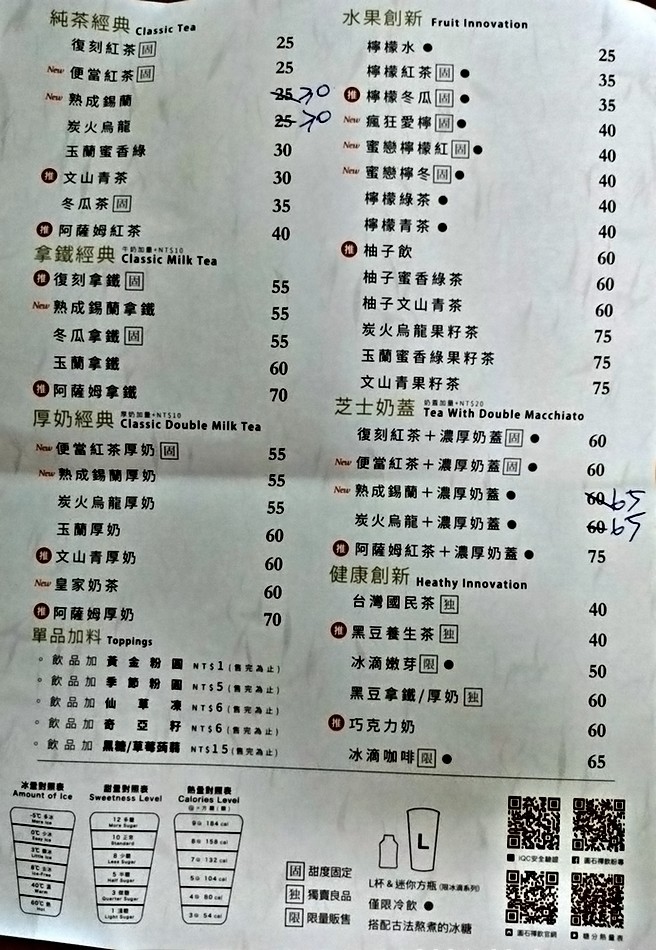 純茶經典 Classic Tea
復刻紅茶 固 25
New 便當紅茶 固 25
New 熟成錫蘭 25 30
炭火烏龍 25 30
玉蘭蜜香綠 30
推 文山青茶 30
冬瓜茶 固 35
推 阿薩姆紅茶 40
拿鐵經典 牛奶加量+NT$10 Classic Milk Tea
推 復刻拿鐵 固 55
New 熟成錫蘭拿鐵 55
冬瓜拿鐵 固 55
玉蘭拿鐵 60
推 阿薩姆拿鐵 70
厚奶經典 厚奶加量+NT$10 Classic Double Milk Tea
New 便當紅茶厚奶 固 55
New 熟成錫蘭厚奶 55
炭火烏龍厚奶 55
玉蘭厚奶 60
推 文山青厚奶 60
New 皇家奶茶 60
推 阿薩姆厚奶 70
單品加料 Toppings
飲品加 黃金粉圓 NT$1 (售完為止)
飲品加 季節粉圓 NT$5 (售完為止)
飲品加 仙草凍 NT$6 (售完為止)
飲品加 奇亞籽 NT$6 (售完為止)
飲品加 黑糖/草莓蒟蒻 NT$15 (售完為止)
水果創新 Fruit Innovation
檸檬水 ● 25
檸檬紅茶 固 ● 35
推 檸檬冬瓜 固 ● 35
New 瘋狂愛檸 固 ● 40
New 蜜戀檸檬紅 固 ● 40
New 蜜戀檸冬 固 ● 40
檸檬綠茶 ● 40
檸檬青茶 ● 40
推 柚子飲 60
柚子蜜香綠茶 60
柚子文山青茶 60
炭火烏龍果籽茶 75
玉蘭蜜香綠果籽茶 75
文山青果籽茶 75
芝士奶蓋 奶蓋加量+NT$20 Tea With Double Macchiato
復刻紅茶+濃厚奶蓋 固 ● 60
New 便當紅茶+濃厚奶蓋 固 ● 60
New 熟成錫蘭+濃厚奶蓋 ● 60 65
炭火烏龍+濃厚奶蓋 ● 60 65
推 阿薩姆紅茶+濃厚奶蓋 ● 75
健康創新 Heathy Innovation
台灣國民茶 独 40
推 黑豆養生茶 独 40
冰滴嫩芽 限 ● 50
黑豆拿鐵/厚奶 独 60
推 巧克力奶 60
冰滴咖啡 限 ● 65
冰量對照表
Amount of Ice
-5℃ 多冰
More Ice
0℃ 少冰
Easy Ice
3℃ 微冰
Little Ice
6℃ 去冰
Ice-Free
40℃ 溫
Warm
60℃ 熱
Hot
甜量對照表
Sweetness Level
12 多糖
More Sugar
10 正常
Standard
8 少糖
Less Sugar
5 半糖
Half Sugar
3 微糖
Quarter Sugar
1 淺糖
Light Sugar
熱量對照表
Calories Level
9 184 cal
8 158 cal
7 132 cal
5 104 cal
4 80 cal
3 54 cal
固 甜度固定
独 獨賣良品
限 限量販售
L
L杯&迷你方瓶(限冰滴系列)
僅限冷飲 ●
搭配古法熬煮的冰糖
IQC安全驗證
圓石禪飲粉專
圓石禪飲官網
糖分熱量表